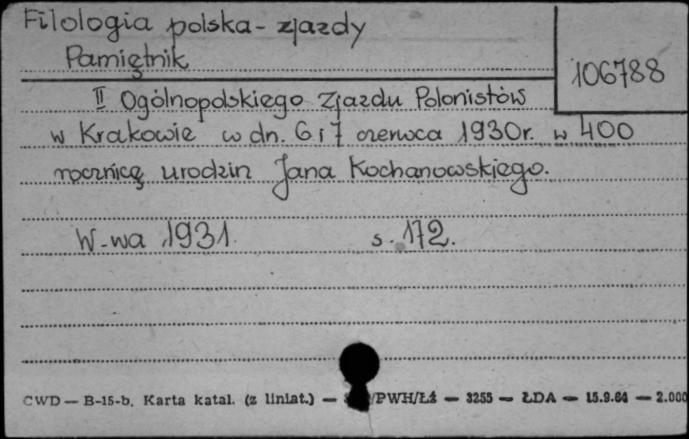 Filologia polska - zjazdy
Pamiętnik
106788
II Ogólnopolskiego Zjazdu Polonistów
w Krakowie w dn. 6 i 7 czerwca 1930r. w 400
rocznicę urodzin Jana Kochanowskiego.
W-wa 1931. s. 172.
CWD — B-15-b. Karta katal. (z liniat.) — /PWH/Łź — 3255 — ŁDA — 15.9.64 — 2.000